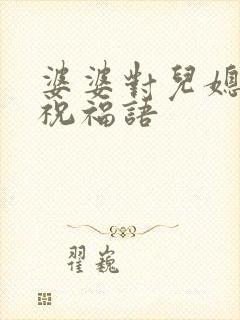 婆婆對兒媳
祝福語
翟巍